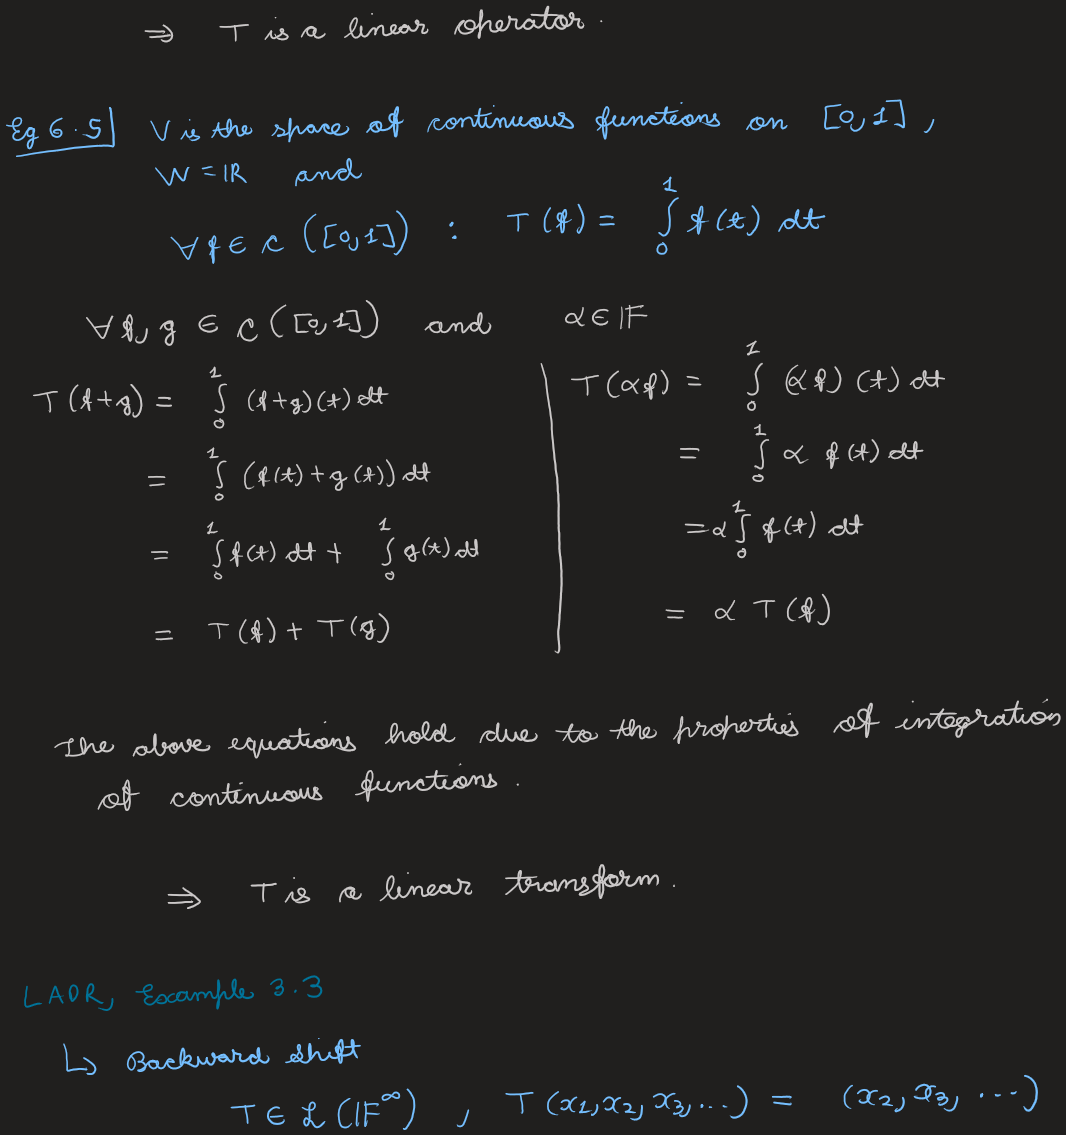 ⇒ T is a linear operator.
Eg 6.5 V is the space of continuous functions on [0,1],
W = ℝ and
∀ f ∈ C([0,1]) : T(f) = ∫₀¹ f(t) dt
∀ f, g ∈ C([0,1]) and α ∈ 𝔽
T(f+g) = ∫₀¹ (f+g)(t) dt
= ∫₀¹ (f(t) + g(t)) dt
= ∫₀¹ f(t) dt + ∫₀¹ g(t) dt
= T(f) + T(g)
T(αf) = ∫₀¹ (αf)(t) dt
= ∫₀¹ α f(t) dt
= α ∫₀¹ f(t) dt
= α T(f)
The above equations hold due to the properties of integration
of continuous functions.
⇒ T is a linear transform.
LADR, Example 3.3
↳ Backward shift
T ∈ ℒ(𝔽^∞) , T(x₁, x₂, x₃, ...) = (x₂, x₃, ...)